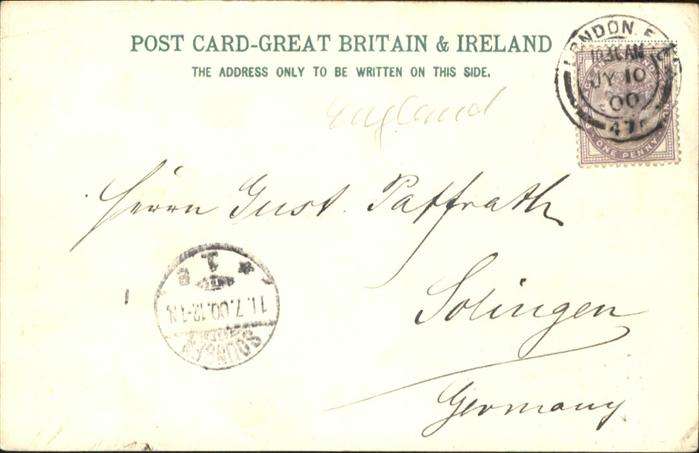 POST CARD-GREAT BRITAIN & IRELAND
THE ADDRESS ONLY TO BE WRITTEN ON THIS SIDE.
LONDON. E.C
10.30 AM
JY 10
00
47
ONE PENNY
England
Herrn Gust. Paffrath
Solingen
Germany
SOLINGEN
11.7.00.12-1N.
* 1 g